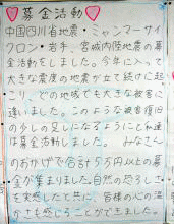 募金活動
中国四川省地震・ミャンマーサイ
クロン・岩手、宮城内陸地震の募
金活動をしました。今年に入って
大きな震度の地震が立て続けに起
こり、どの地域でも大きな被害に
遭いました。このような被害復旧
の少しの足しになるようにと私達
は募金活動しました。みなさん
のおかげで合計5万円以上の募
金が集まりました。自然の恐ろしさ
を実感したと共に、皆様の心の温
かさも感じることができました。